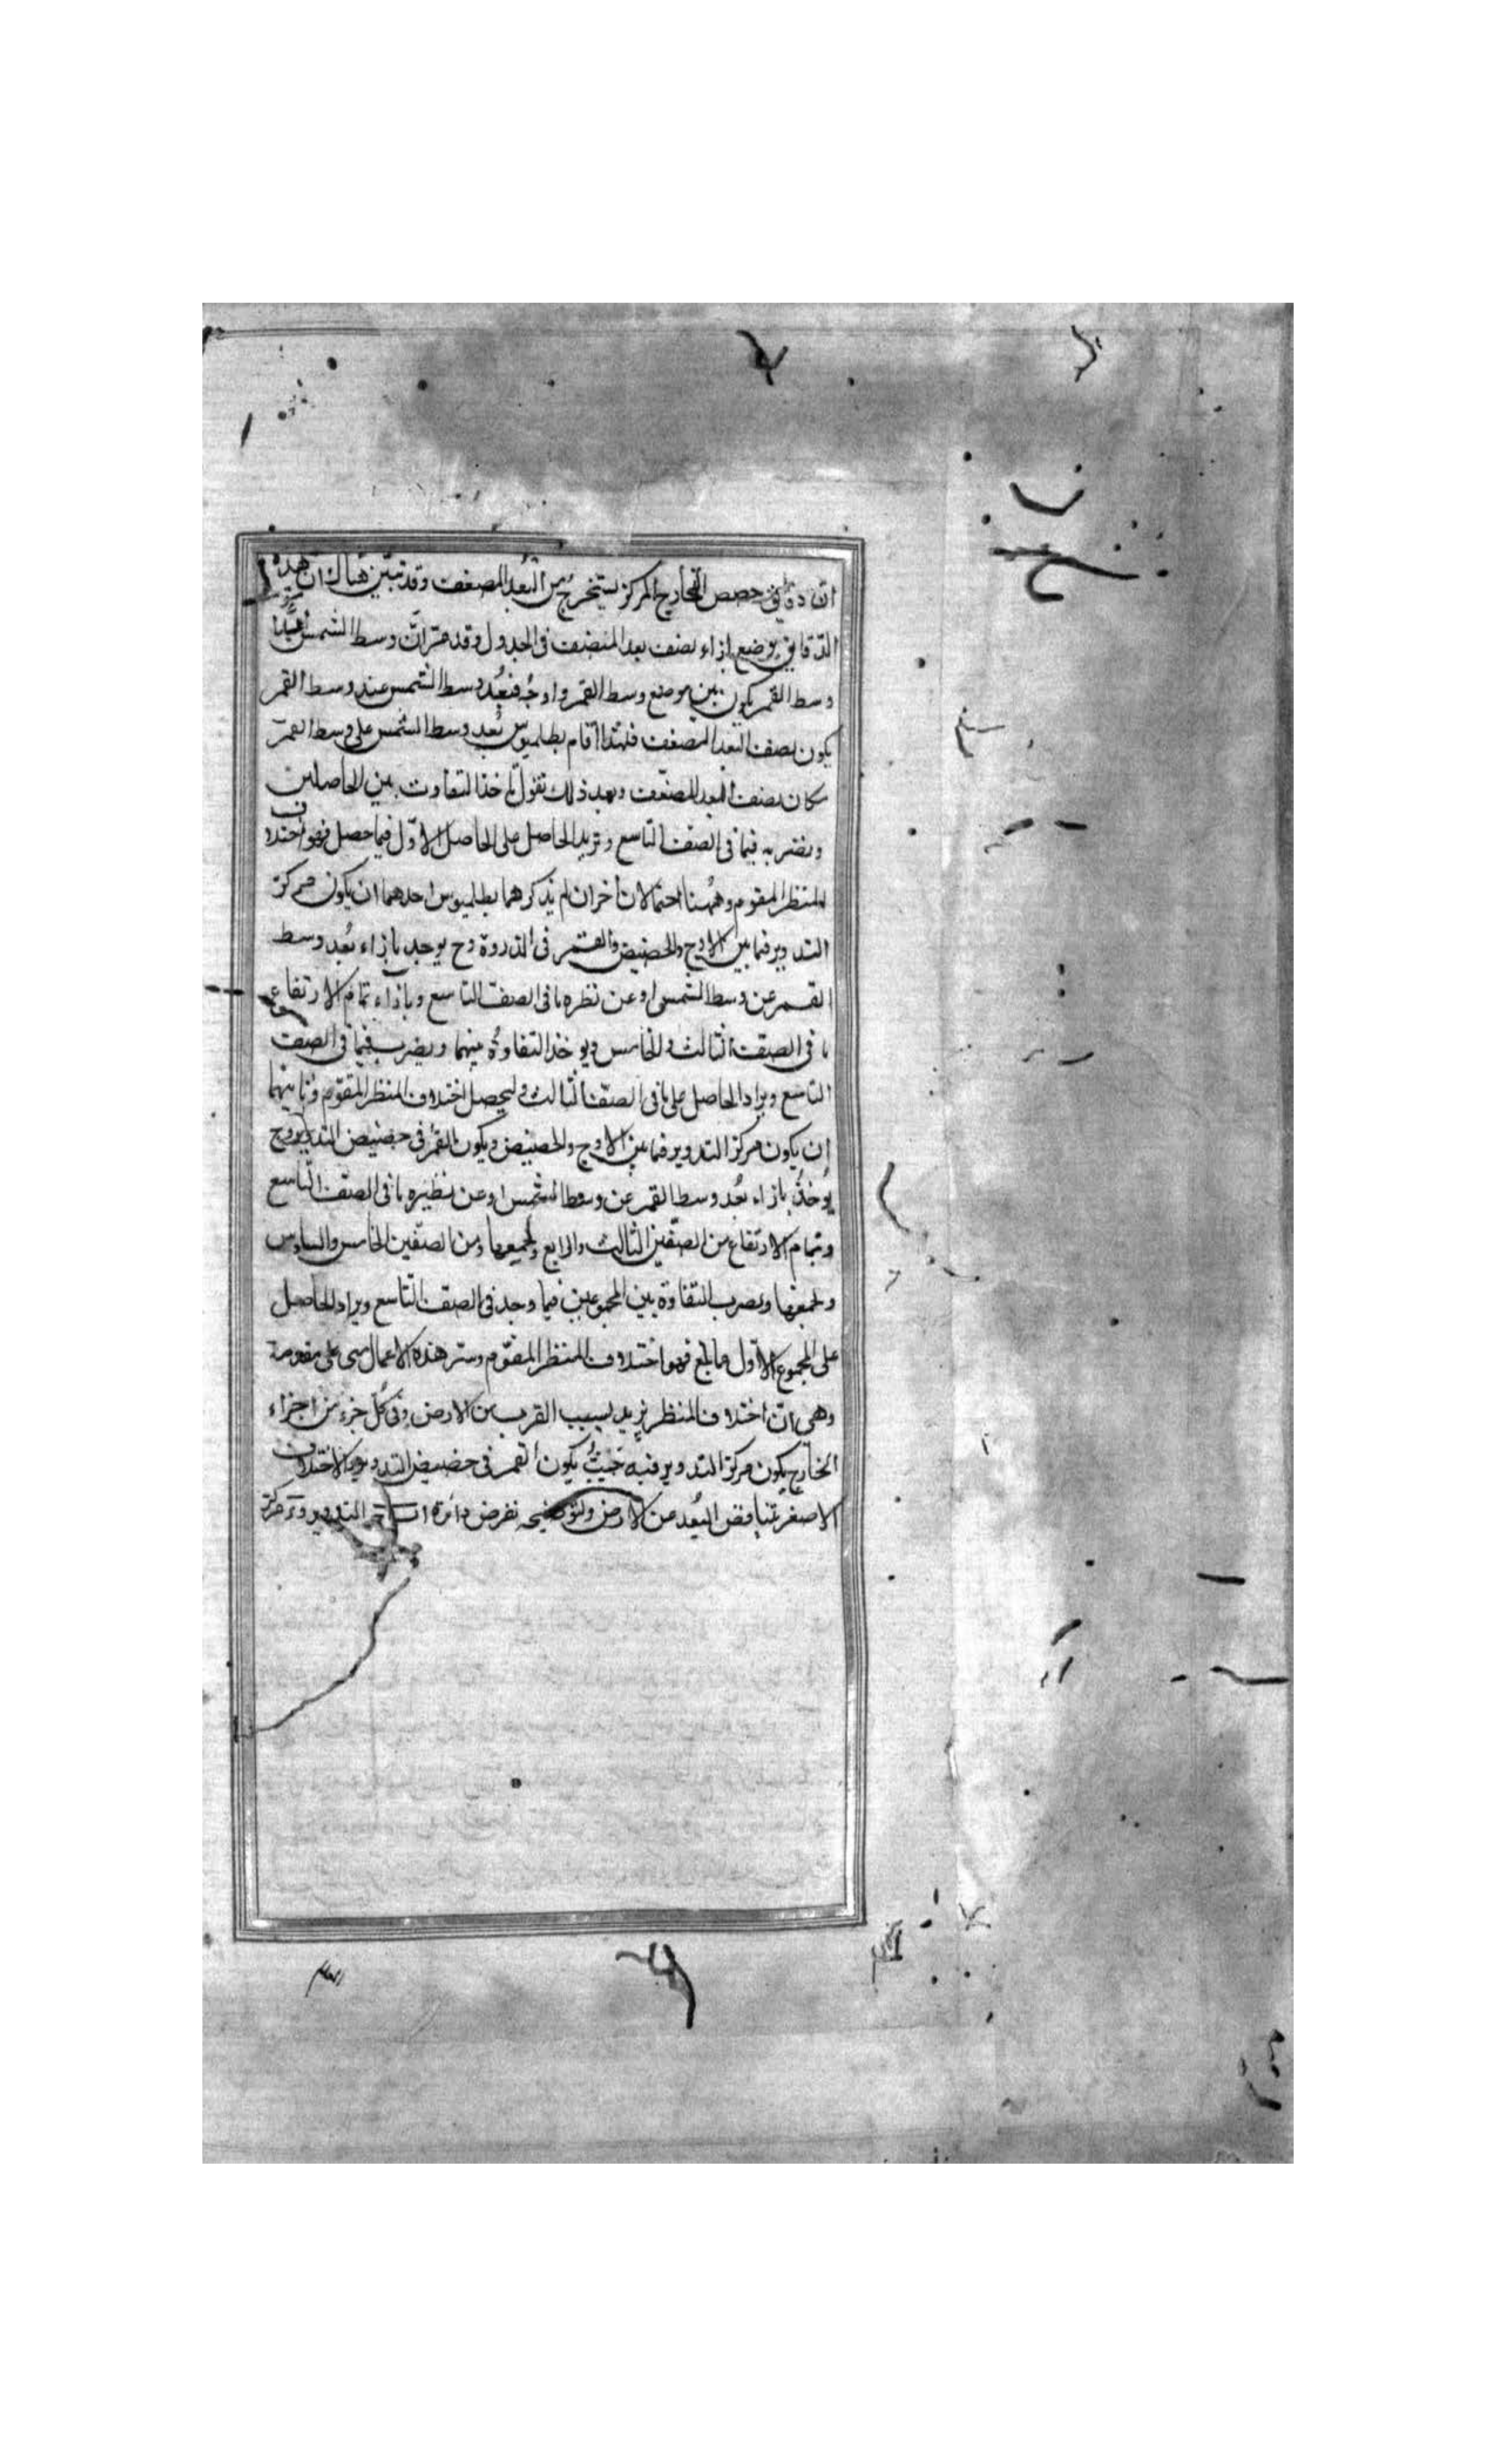 ان دقايق حصص الخارج المركز يستخرج من البعد المضعف وقد تبين هناك ان هذه
الدقايق يوضع بازاء نصف بعد المضعف فى الجدول وقد مر ان وسط الشمس
وسط القمر يكون بين موضع وسط القمر واوجه فبعد وسط الشمس عند وسط القمر
يكون نصف البعد المضعف فلهذا اقام بطلميوس بعد وسط الشمس على وسط القمر
مكان نصف البعد المضعف وبعد ذلك نقول ناخذ التفاوت بين الحاصلين
ونضربه فيما فى الصف التاسع ونزيد الحاصل على الحاصل الاول فيما حصل فهو اختلاف
المنظر المقوم وههنا احتمالان اخران لم يذكرهما بطلميوس احدهما ان يكون مركز
التدوير فيما بين الاوج والحضيض والقمر فى الذروة وح يوجد بازاء بعد وسط
القمر عن وسط الشمس او عن نظيره ما فى الصف التاسع وبازاء تمام الارتفاع
ما فى الصف الثالث والخامس ويوخذ التفاوة بينهما ويضرب فيما فى الصف
التاسع ويزاد الحاصل على ما فى الصف الثالث ليحصل اختلاف المنظر المقوم وثانيهما
ان يكون مركز التدوير فيما بين الاوج والحضيض ويكون القمر فى حضيض التدوير وح
يوخذ بازاء بعد وسط القمر عن وسط الشمس او عن نظيره ما فى الصف التاسع
وتمام الارتفاع من الصفين الثالث والرابع ونجمعها ومن الصفين الخامس والسادس
ونجمعها ونضرب التفاوة بين المجموعين فيما وجد فى الصف التاسع ويزاد الحاصل
على المجموع الاول فما بلغ فهو اختلاف المنظر المقوم وستر هذه الاعمال على مقدمة
وهى ان اختلاف المنظر يزيد بسبب القرب من الارض وفى كل جزء من اجزاء
الخارج يكون مركز التدوير فيه حيث يكون القمر فى حضيض التدوير الاختلاف
الاصغر لتناقض البعد من الارض ولتوضيحه نفرض دائرة التدوير ومركز